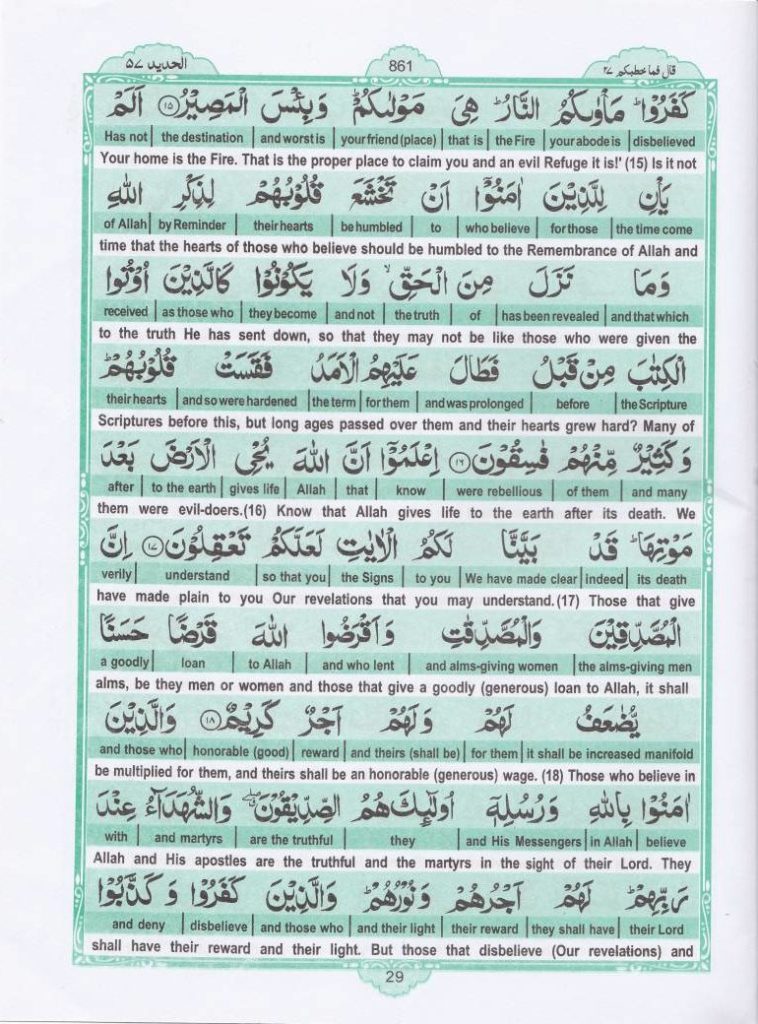 الحديد ٥٧ 861 قال فما خطبكم ٢٧
كَفَرُوْا ؕ مَاْوٰىكُمُ النَّارُ ؕ هِىَ مَوْلٰىكُمْ ؕ وَبِئْسَ الْمَصِيْرُ ﴿۱۵﴾ اَلَمْ
Has not the destination and worst is your friend (place) that is the Fire your abode is disbelieved
Your home is the Fire. That is the proper place to claim you and an evil Refuge it is!' (15) Is it not
يَاْنِ لِلَّذِيْنَ اٰمَنُوْۤا اَنْ تَخْشَعَ قُلُوْبُهُمْ لِذِكْرِ اللّٰهِ
of Allah by Reminder their hearts be humbled to who believe for those the time come
time that the hearts of those who believe should be humbled to the Remembrance of Allah and
وَمَا نَزَلَ مِنَ الْحَقِّ ۙ وَلَا يَكُوْنُوْا كَالَّذِيْنَ اُوْتُوا
received as those who they become and not the truth of has been revealed and that which
to the truth He has sent down, so that they may not be like those who were given the
الْكِتٰبَ مِنْ قَبْلُ فَطَالَ عَلَيْهِمُ الْاَمَدُ فَقَسَتْ قُلُوْبُهُمْ ؕ
their hearts and so were hardened the term for them and was prolonged before the Scripture
Scriptures before this, but long ages passed over them and their hearts grew hard? Many of
وَكَثِيْرٌ مِّنْهُمْ فٰسِقُوْنَ ﴿۱۶﴾ اِعْلَمُوْۤا اَنَّ اللّٰهَ يُحْىِ الْاَرْضَ بَعْدَ
after to the earth gives life Allah that know were rebellious of them and many
them were evil-doers.(16) Know that Allah gives life to the earth after its death. We
مَوْتِهَا ؕ قَدْ بَيَّنَّا لَكُمُ الْاٰيٰتِ لَعَلَّكُمْ تَعْقِلُوْنَ ﴿۱۷﴾ اِنَّ
verily understand so that you the Signs to you We have made clear indeed its death
have made plain to you Our revelations that you may understand.(17) Those that give
الْمُصَّدِّقِيْنَ وَالْمُصَّدِّقٰتِ وَاَقْرَضُوا اللّٰهَ قَرْضًا حَسَنًا
a goodly loan to Allah and who lent and alms-giving women the alms-giving men
alms, be they men or women and those that give a goodly (generous) loan to Allah, it shall
يُّضٰعَفُ لَهُمْ وَلَهُمْ اَجْرٌ كَرِيْمٌ ﴿۱۸﴾ وَالَّذِيْنَ
and those who honorable (good) reward and theirs (shall be) for them it shall be increased manifold
be multiplied for them, and theirs shall be an honorable (generous) wage. (18) Those who believe in
اٰمَنُوْا بِاللّٰهِ وَرُسُلِهٖۤ اُولٰٓئِكَ هُمُ الصِّدِّيْقُوْنَ ۖ وَالشُّهَدَآءُ عِنْدَ
with and martyrs are the truthful they and His Messengers in Allah believe
Allah and His apostles are the truthful and the martyrs in the sight of their Lord. They
رَبِّهِمْ ؕ لَهُمْ اَجْرُهُمْ وَنُوْرُهُمْ ؕ وَالَّذِيْنَ كَفَرُوْا وَكَذَّبُوْا
and deny disbelieve and those who and their light their reward they shall have their Lord
shall have their reward and their light. But those that disbelieve (Our revelations) and
29